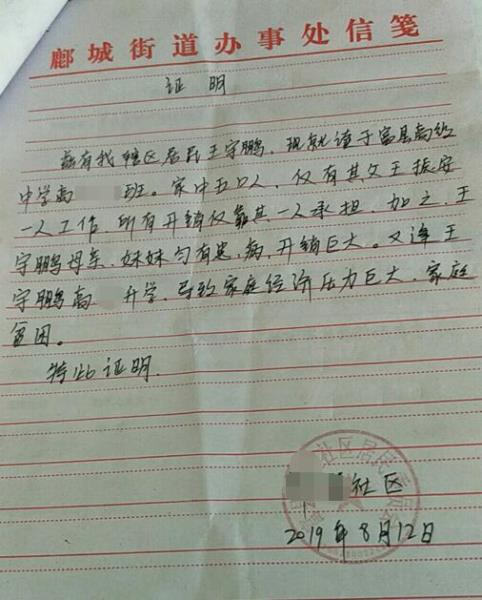 鄜城街道办事处信笺
证 明
兹有我辖区居民王宇鹏,现就读于富县高级
中学高 班。家中五口人,仅有其父王振安
一人工作,所有开销仅靠其一人承担,加之,王
宇鹏母亲、妹妹均有患病,开销巨大。又逢王
宇鹏高 升学,导致家庭经济压力巨大,家庭
贫困。
特此证明.
社区居民
社区
2019年8月12日